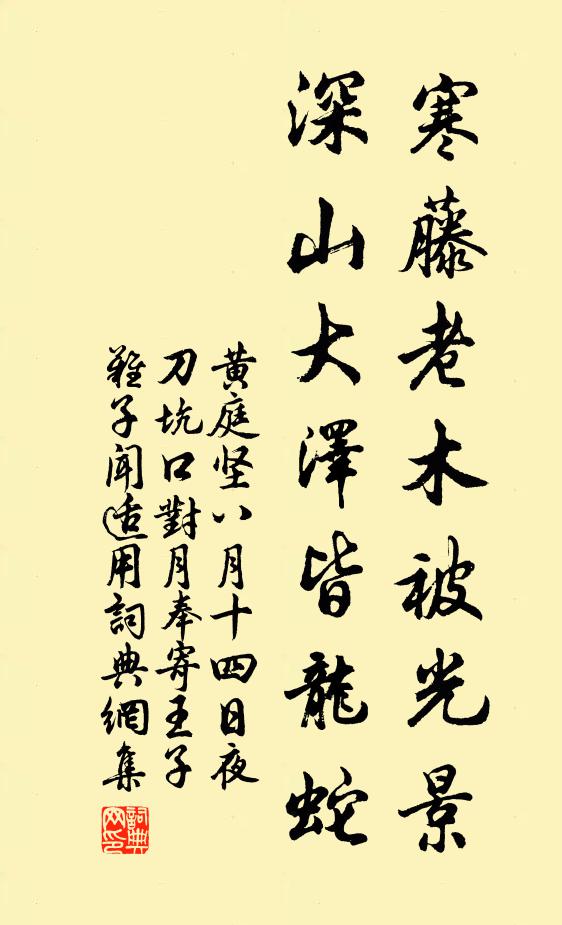 寒藤老木被光景
深山大澤皆龍蛇
黃庭坚八月十四日夜
刀坑口對月奉寄王子
難子聞适用詞典網集
詞典网印